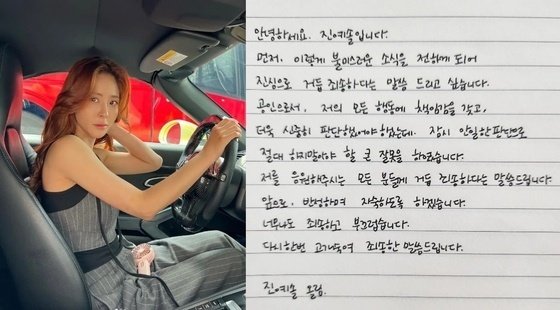 안녕하세요. 진예솔입니다.
먼저, 이렇게 불미스러운 소식을 전하게 되어
진심으로 거듭 죄송하다는 말씀 드리고 싶습니다.
공인으로서, 저의 모든 행동에 책임감을 갖고,
더욱 신중히 판단했어야 했는데. 잠시 안일한 판단으로
절대 하지말아야 할 큰 잘못을 하였습니다.
저를 응원해주시는 모든 분들께 거듭 죄송하다는 말씀드립니다.
앞으로, 반성하며 자숙하도록 하겠습니다.
너무나도 죄송하고 부끄럽습니다.
다시한번 고개숙여 죄송한 말씀드립니다.
진예솔 올림.